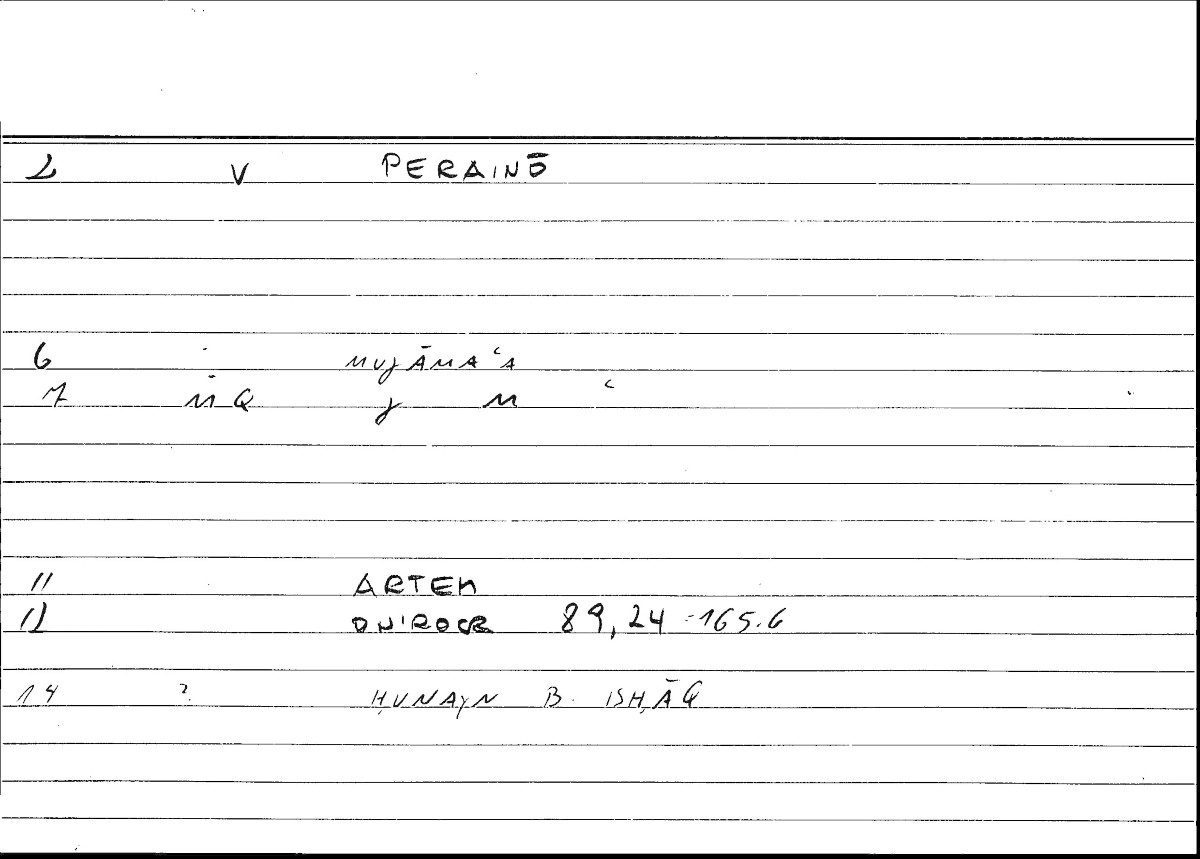 2 V PERAINŌ
6 MUJĀMAʿA
7 MQ J M ʿ
11 ARTEM
12 ONIROCR 89,24-165.6
14 ? ḤUNAYN B. ISḤĀQ